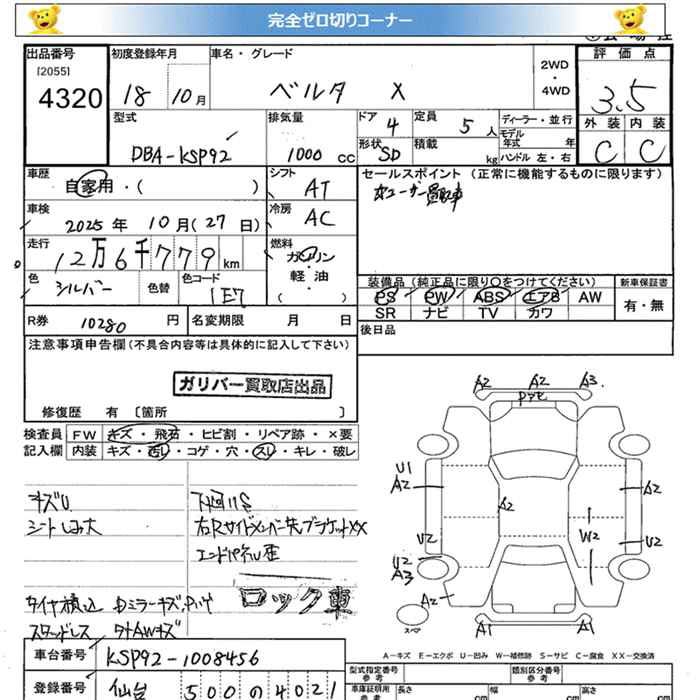 完全ゼロ切りコーナー
出品番号 初度登録年月 車名・グレード 評価点
[2055]
4320 18 10月 ベルタ X 2WD・4WD 3.5
型式 排気量 ドア 4 定員 5人 ディーラー・並行 外装 内装
モデル年式 年
DBA-KSP92 1000cc 形状 SD 積載 kg ハンドル 左・右 C C
車歴 自家用・( ) シフト AT セールスポイント (正常に機能するものに限ります)
本ユーザー買取車
車検 2025年 10月(27日) 冷房 AC
走行 12万6千779km 燃料 ガソリン 軽・油 ( )
色 シルバー 色替 色コード 1E7
装備品(純正品に限り〇をつけてください) 新車保証書
PS PW ABS エアB AW 有・無
SR ナビ TV カワ
R券 10280円 名変期限 月 日 後日品
注意事項申告欄(不具合内容等は具体的に記入して下さい)
ガリバー買取店出品
修復歴 有 〔箇所 〕
検査員記入欄 FW キズ・飛石・ヒビ割・リペア跡・×要
内装 キズ・汚レ・コゲ・穴・スレ・キレ・破レ
キズU 下回りS
シートしみ大 右Rサイドメンバー先ブラケットXX
エンドパネル歪
ロック車
タイヤ積込 Dミラーキズ
スタッドレス タイヤAWキズ
A2 A2 A3
U1
A2 A2 A2
W2
U2 U2
U2
A3
A2
スペア A1 A1
A-キズ E-エクボ U-凹み W-補修跡 S-サビ C-腐食 XX-交換済
車台番号 KSP92-1008456
型式指定番号 類別区分番号
参考
登録番号 仙台 500 の 4021
車庫証明用参考 長さ cm 幅 cm 高さ cm